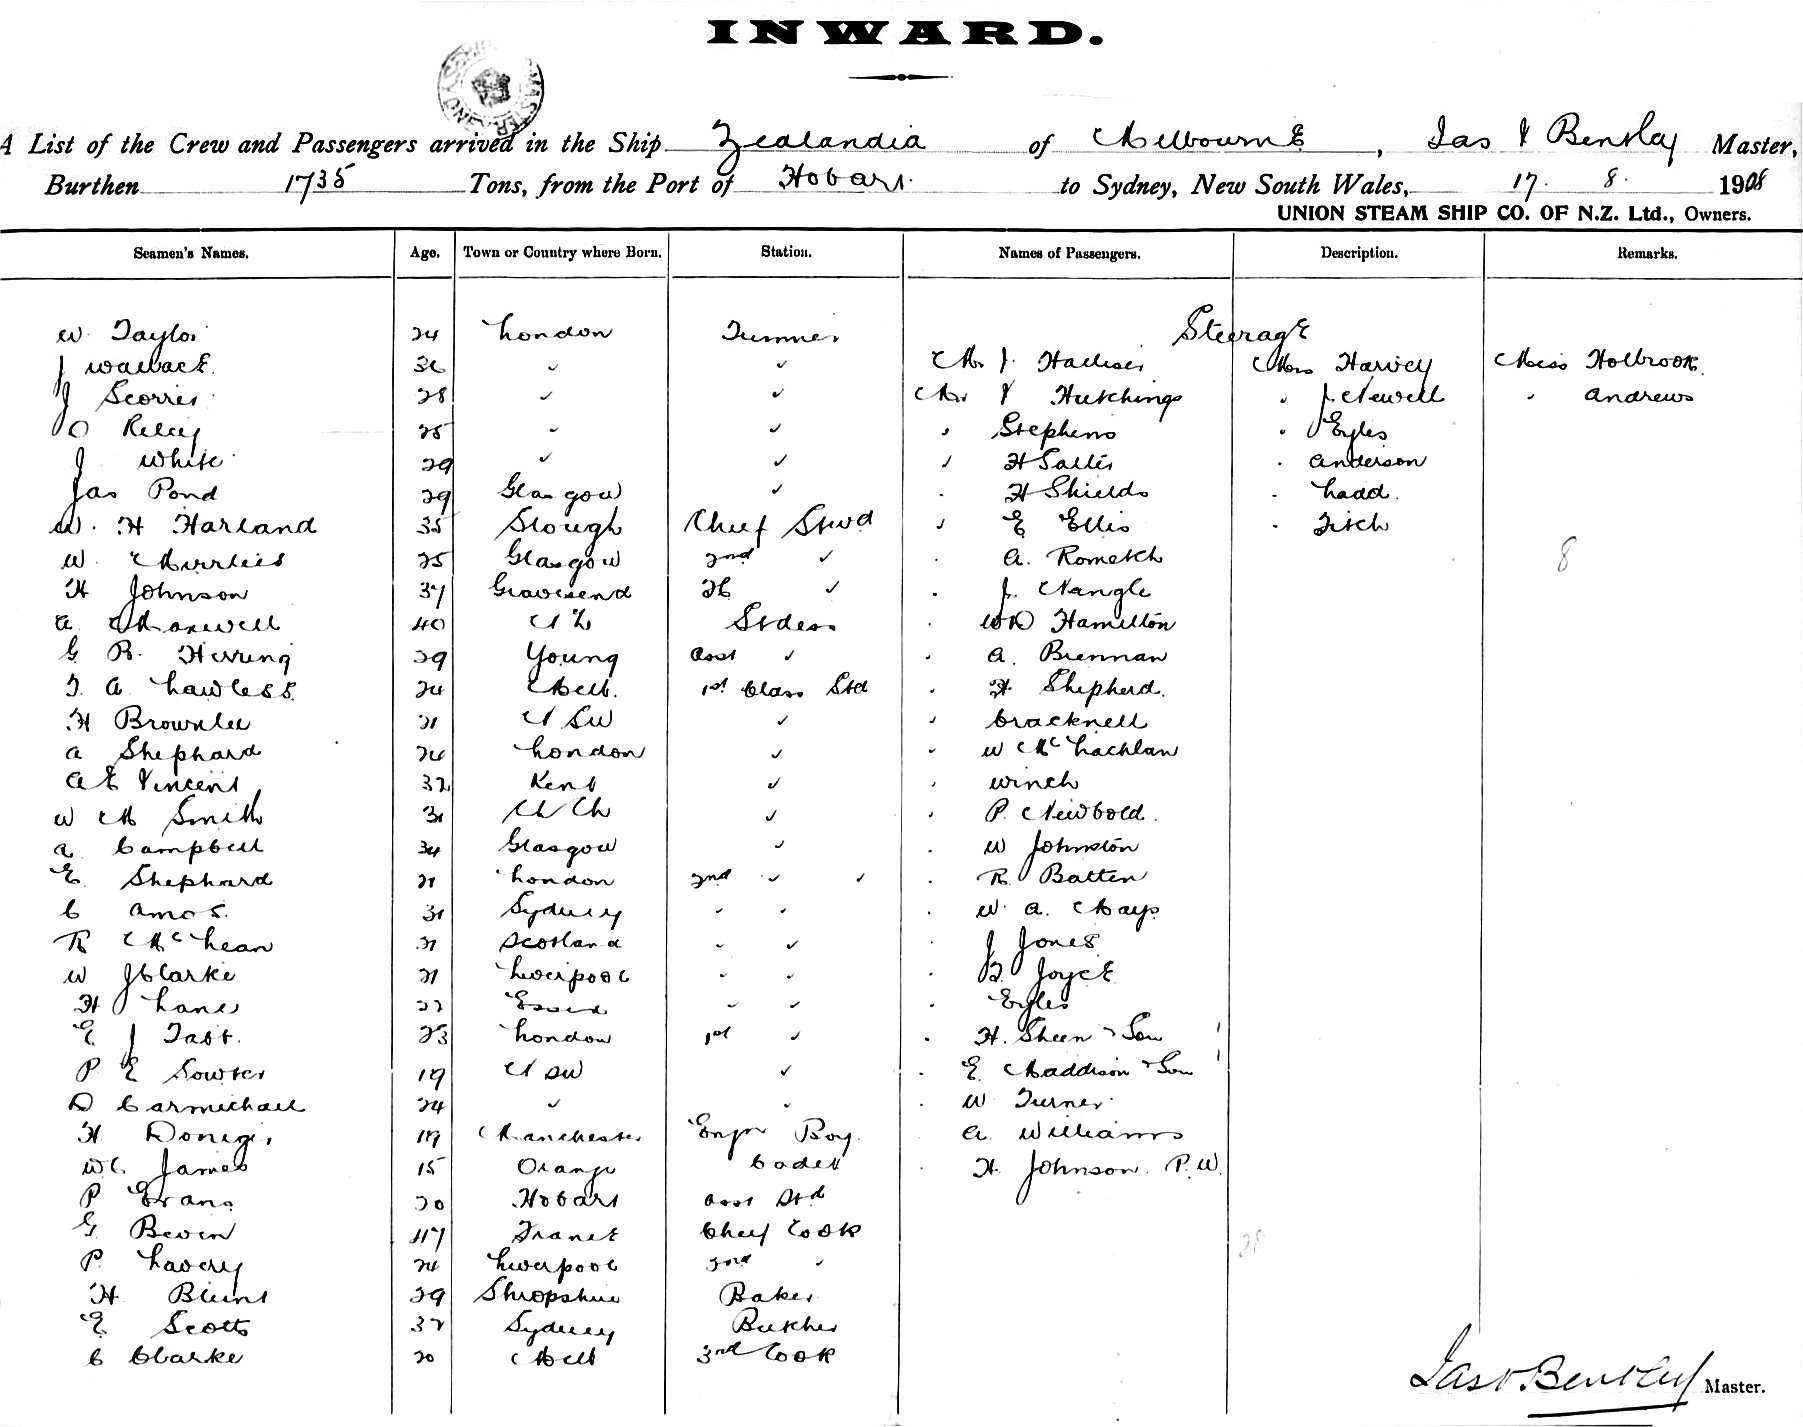 INWARD.
A List of the Crew and Passengers arrived in the Ship Zealandia of Melbourne, Jas V Bentley Master,
Burthen 1735 Tons, from the Port of Hobart to Sydney, New South Wales, 17. 8. 1908
UNION STEAM SHIP CO. OF N.Z. Ltd., Owners.
Seamen's Names. Age. Town or Country where Born. Station. Names of Passengers. Description. Remarks.
Steerage
W. Taylor 24 London Trimmer
J Wallace ✓ ✓ Mr J. Mrs Harvey Miss Holbrook
J 28 ✓ ✓ Mr V Hutchings " J. Newell " Andrews
O Reiley 25 ✓ ✓ " Stephens " Eyles
J White 29 ✓ ✓ " H Salter " Anderson
Jas Pond 29 Glasgow ✓ " H Shields " Ladd.
W. H Harland 35 Slough Chief Stwd " E Ellis " Fitch
W. Mirrlies 25 Glasgow 2nd ✓ " A. Rometch 8
H Johnson 37 Gravesend ✓ " J. Nangle
A. Maxwell 40 N Z Stdess " WD Hamilton
G B. Herring 29 Young Asst ✓ " A. Brennan
T. A. Lawless 24 Melb. 1st Class Std " H. Shepherd.
H Brownlee 21 N SW ✓ " Cracknell
A Shephard 24 London ✓ " W McLachlan
A E Vincent 32 Kent ✓ " Winch
W M Smith 31 Ch Ch ✓ " P. Newbold.
A. Campbell 34 Glasgow ✓ " W Johnston
E. Shephard 21 London 2nd ✓ ✓ " R. Batten
C Amos. 31 Sydney " " " W. A. Mays
R McLean 31 Scotland " ✓ " J Jones
W J Clarke 21 Liverpool " " " B. Joyce
H Lane 22 Essex " " " Eyles
E J Tabt. 23 London 1st ✓ " H. Sheen & Son 1
P E Sowter 19 N SW ✓ " E. Maddison & Son 1
D Carmichael 24 ✓ ✓ " W Turner
H. Doneger 19 Manchester Engr Boy. A. Williams
WC James 15 Orange Cadet " H. Johnson. P.W.
P Evans 20 Hobart Asst Std
G Bevin 47 France Chief Cook 28
P. Lavery 24 Liverpool 2nd "
H. Blunt 29 Shropshire Baker
E. Scotts 32 Sydney Butcher
C Clarke 20 Melb 3rd Cook
Jas V. Bentley Master.